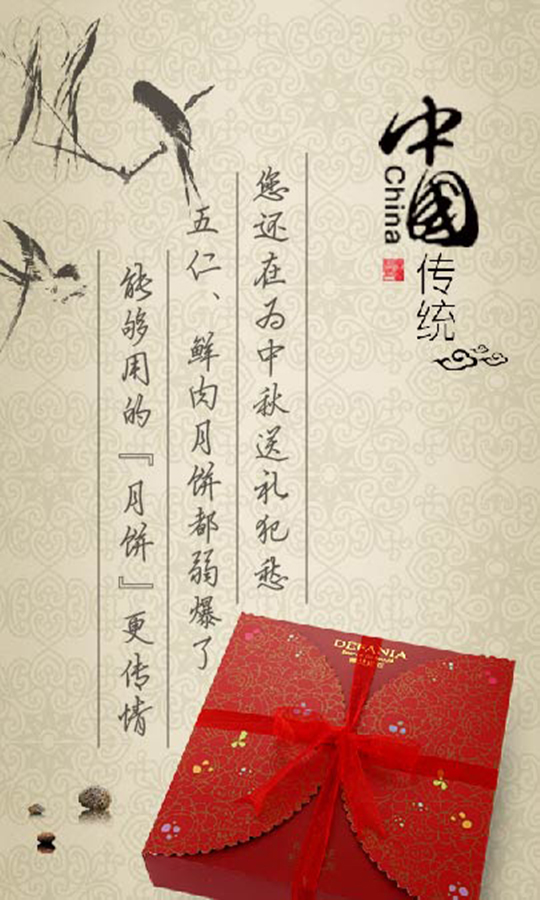 中国
China
传统
您还在为中秋送礼犯愁
五仁、鲜肉月饼都弱爆了
能够用的『月饼』更传情